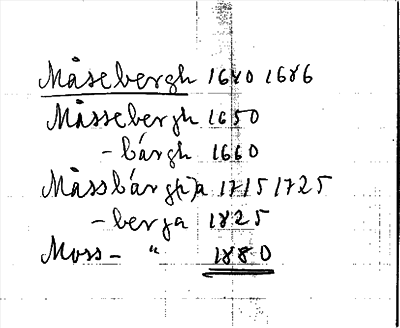 Måsebergh 1640 1686
Måssebergh 1650
-bárgh 1660
Måssbárg(h)a 1715 1725
-berga 1825
Moss- " 1880